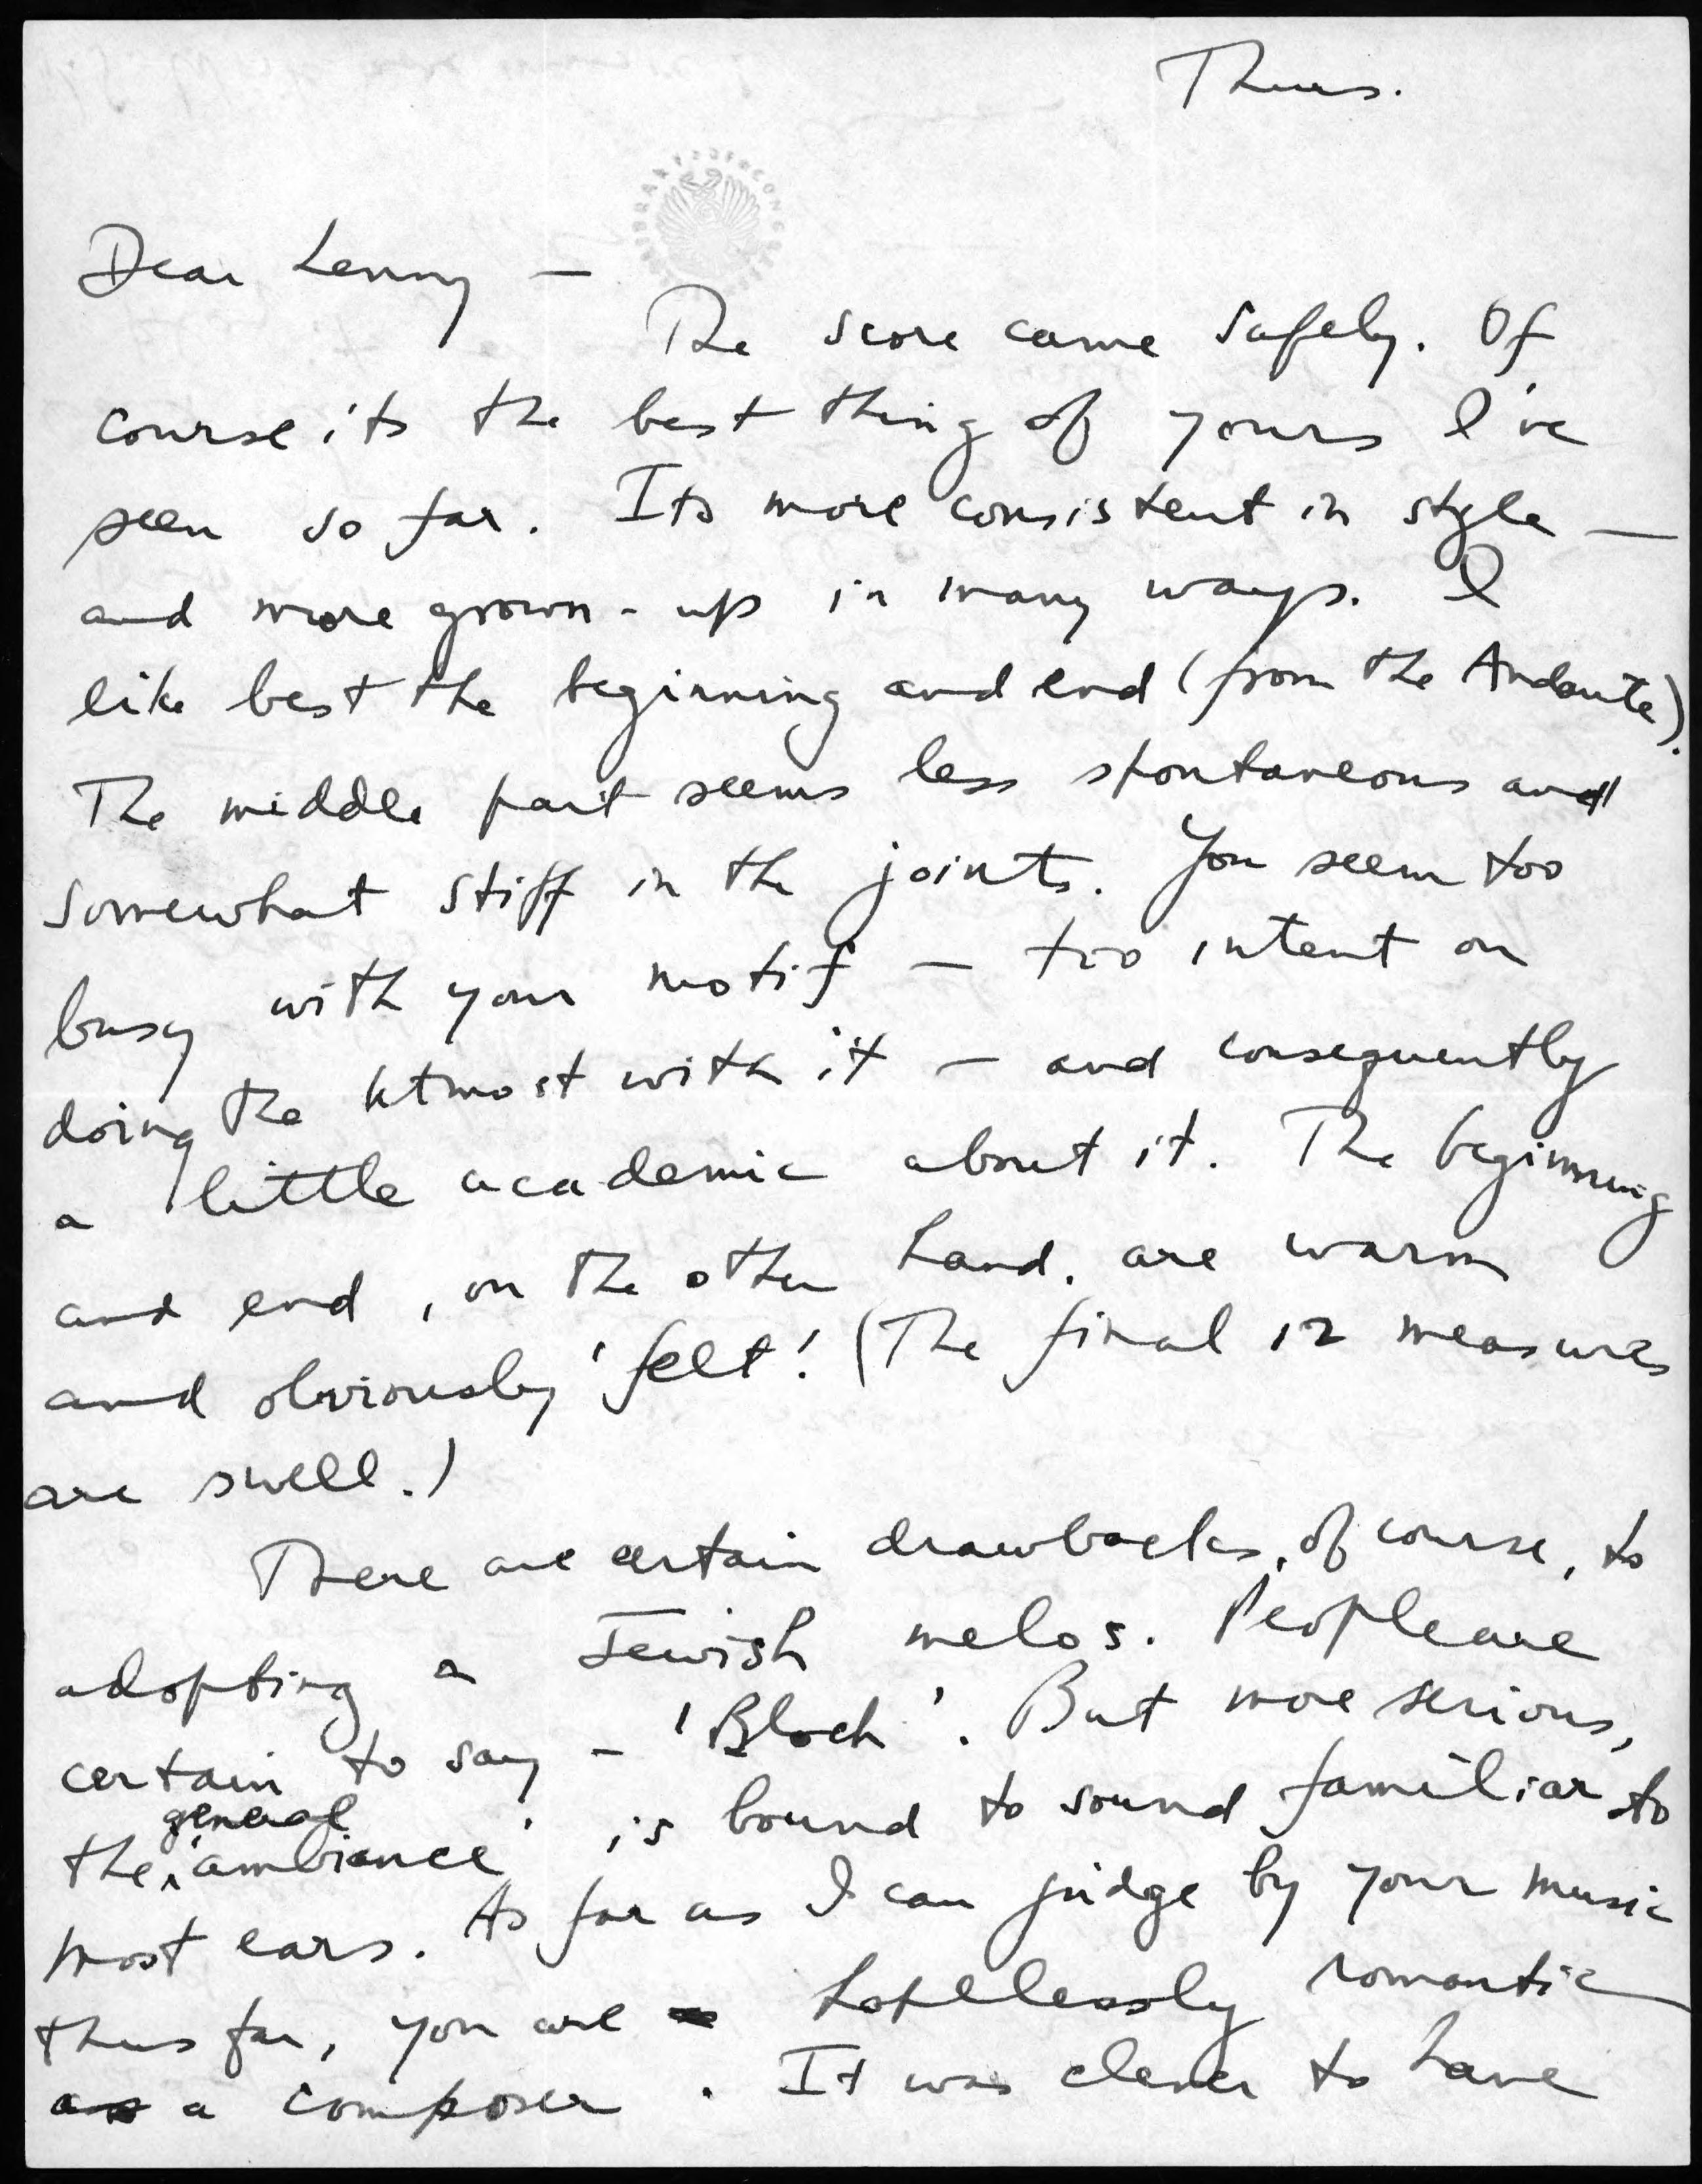 Thurs.
Dear Lenny —
The score came safely. Of
course its the best thing of yours I've
seen so far. Its more consistent in style —
and more grown-up in many ways. I
like best the beginning and end (from the Andante).
The middle part seems less spontaneous and
somewhat stiff in the joints. You seem too
busy with your motif — too intent on
doing the utmost with it — and consequently
a little academic about it. The beginning
and end, on the other hand, are warm
and obviously 'felt'. (The final 12 measures
are swell.)
There are certain drawbacks, of course, to
adopting a Jewish melos. People are
certain to say – 'Bloch'. But more serious,
the general 'ambiance' is bound to sound familiar to
most ears. As far as I can judge by your music
thus far, you are hopelessly romantic
as a composer. It was clever to have
LIBRARY OF CONGRESS